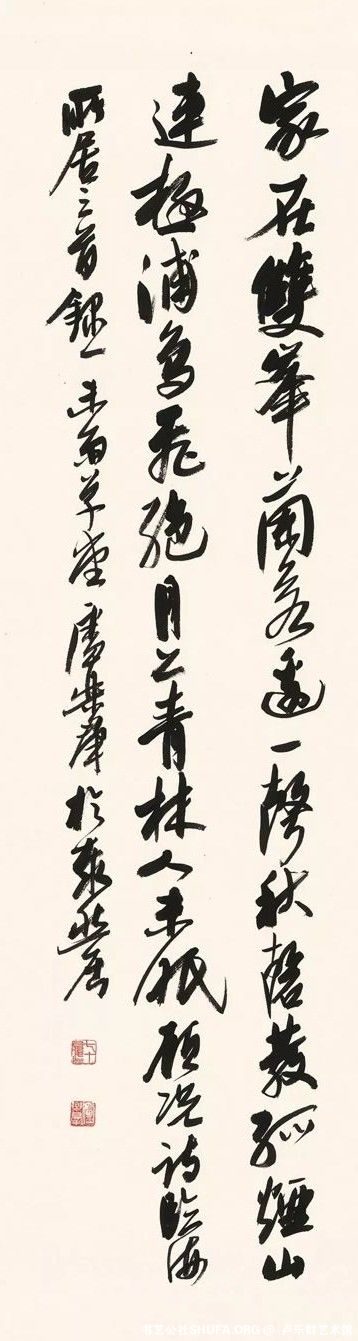 家在雙峯蘭若邊一聲秋磬發孤煙山
連極浦鳥飛絕月上青林人未眠顧況詩臨海
所居三首錄一 草堂盧樂群於居
书艺公社SHUFA.ORG @ 卢乐群艺术馆